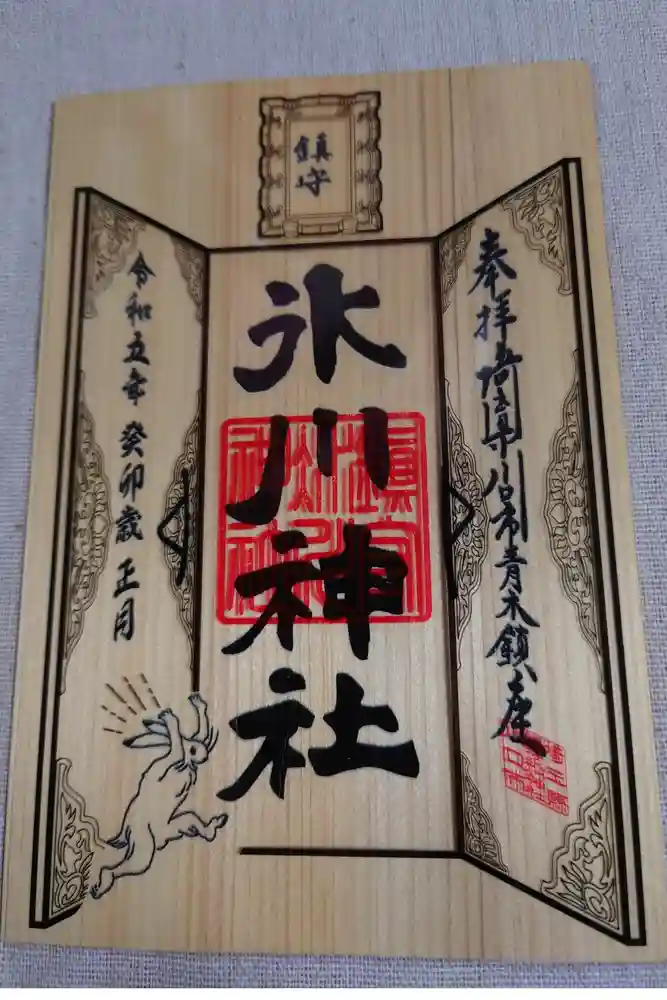 鎮守
奉拝 埼玉県川口市青木鎮座
氷川神社
令和五年 癸卯歳 正月